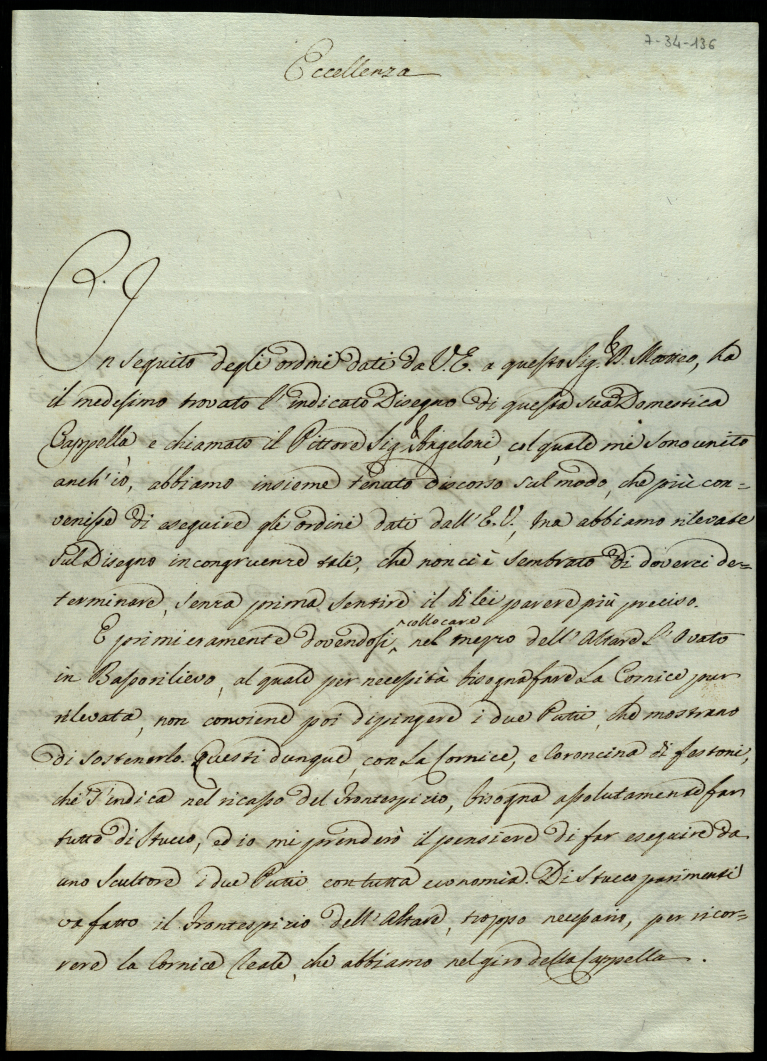 7-34-136
Eccellenza
In seguito degli ordini dati da V.E. a questo Sig. D. Matteo, ha
il medesimo trovato l'indicato Disegno di questa sua Domestica
Cappella, e chiamato il Pittore Sig. Angeloni, col quale mi sono unito
anch'io, abbiamo insieme tenuto discorso sul modo, che più con=
venisse di eseguire gli ordini dati dall'E.V., ma abbiamo rilevate
sul Disegno incongruenze tali, che non ci è sembrato di doverci de=
terminare, senza prima sentire il di lei parere più preciso.
E primieramente dovendosi collocare nel mezzo dell'Altare l'Ovato
in Bassorilievo, al quale per necessità bisogna fare la Cornice pur
rilevata, non conviene poi dipingere i due Putti, che mostrano
di sostenerlo. Questi dunque, con la Cornice, e Coroncina di festoni,
che s'indica nel ricasso del Frontespizio, bisogna assolutamente far
tutto di stucco, ed io mi prenderò il pensiere di far eseguire da
uno Scultore i due Putti con tutta economia. Di Stucco parimenti
va fatto il Frontespizio dell'Altare, troppo necessario, per ricor=
rere la Cornice Reale, che abbiamo nel giro della Cappella.